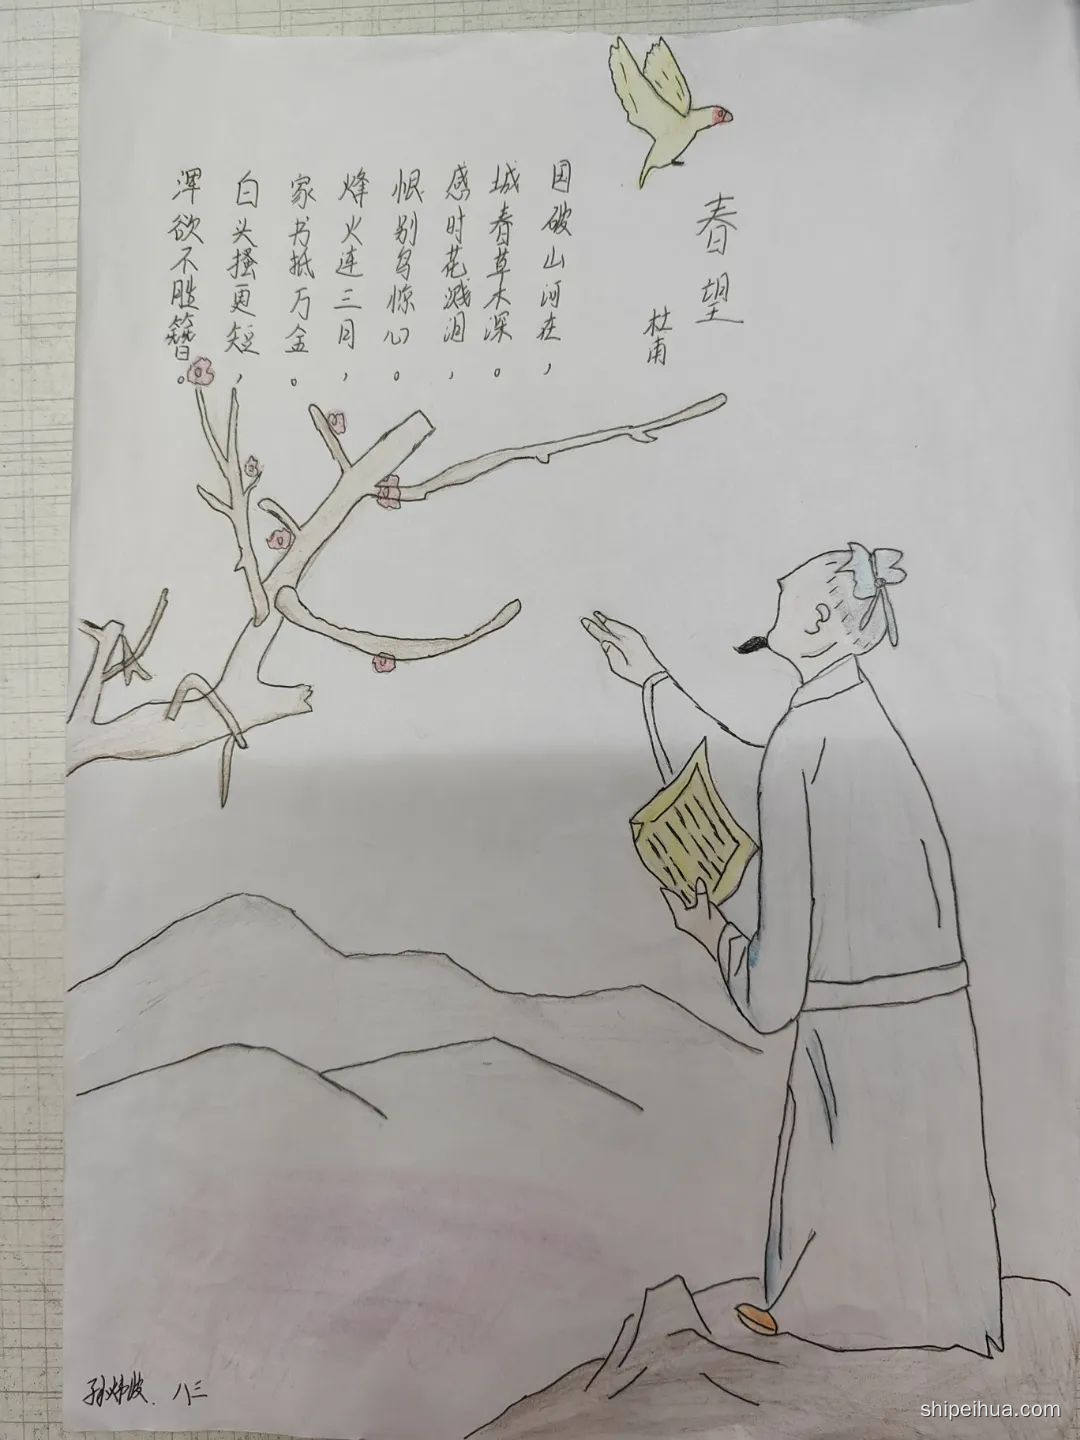 春望
杜甫
国破山河在，
城春草木深。
感时花溅泪，
恨别鸟惊心。
烽火连三月，
家书抵万金。
白头搔更短，
浑欲不胜簪。
孙 八三
shipeihua.com